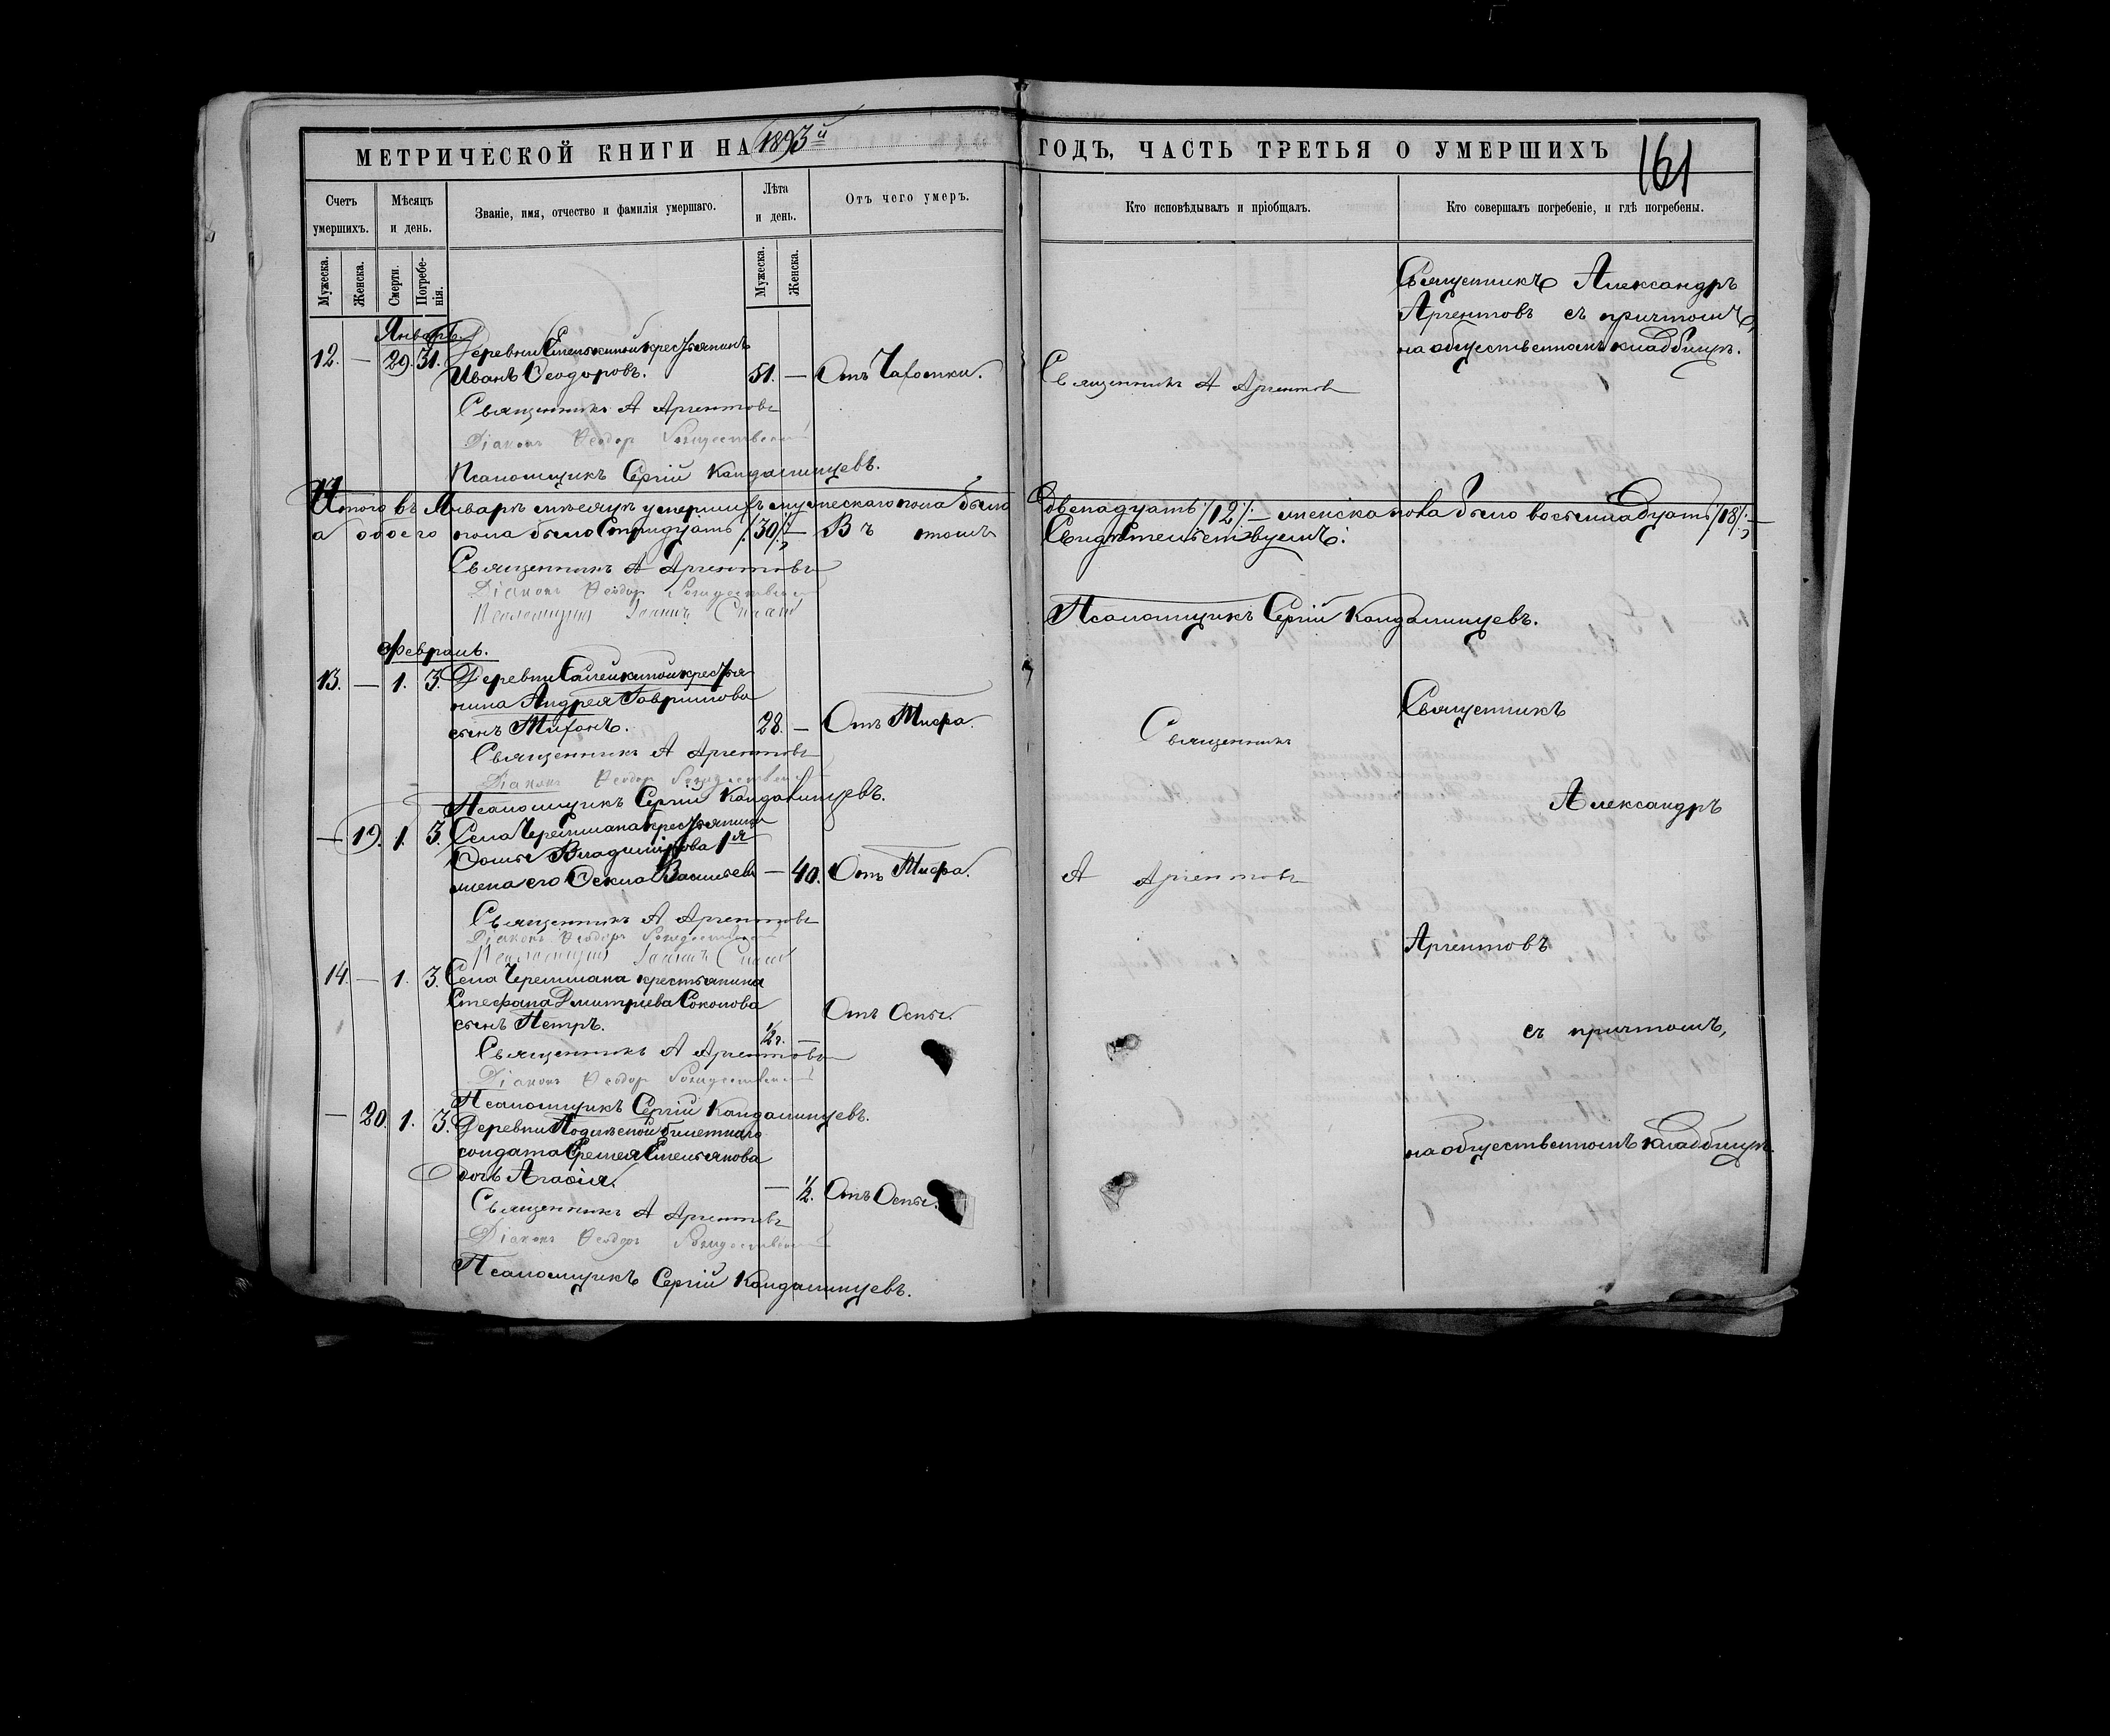 МЕТРИЧЕСКОЙ КНИГИ НА 1893й ГОДЪ, ЧАСТЬ ТРЕТЬЯ О УМЕРШИХЪ
161
Счетъ умершихъ.
Мѣсяцъ и день.
Званіе, имя, отчество и фамилія умершаго.
Лѣта и день.
Отъ чего умеръ.
Кто исповѣдывалъ и пріобщалъ.
Кто совершалъ погребеніе, и гдѣ погребены.
Мужеска.
Женска.
Смерти.
Погребенія.
Мужеска.
Женска.
Священникъ Александръ
Аргентовъ съ причтомъ,
на общественномъ кладбищѣ.
Январь
12. — 29. 31. Деревни крестьянинъ
Иванъ Ѳеодоровъ. 51. — Отъ Чахотки.
Священникъ А Аргентовъ
Священникъ А Аргентовъ
Діаконъ Ѳеодор Рождественскій
Псаломщикъ Сергій Кандалинцевъ.
Итого въ Январѣ мѣсяцѣ умершихъ мужескаго пола было двенадцать /12/ — женска пола было восемнадцать /18/ —
а обоего пола было тридцать /30/ — Въ томъ Свидѣтельствуемъ:
Священникъ А Аргентовъ
Діаконъ Ѳеодор Рождественскій
Псаломщикъ
Псаломщикъ Сергій Кандалинцевъ.
Февраль.
13. — 1. 3. Деревни крестья
нина Андрея Гаврилова
сынъ Тихонъ. 28. — Отъ Тифа.
Священникъ А Аргентовъ
Діаконъ Ѳеодор Рождественскій
Псаломщикъ Сергій Кандалинцевъ.
— 19. 1. 3. Села Черемшана крестьянина
Ѳомы Владимірова 1я
жена его Ѳекла Васильев — 40. Отъ Тифа.
Священникъ А Аргентовъ
Діаконъ Ѳеодоръ Рождественскій
Псаломщикъ
14. — 1. 3. Села Черемшана крестьянина
Стефана Дмитріева Соколова
сынъ Петръ. ½ г. — Отъ Оспы.
Священникъ А Аргентовъ
Діаконъ Ѳеодор Рождественскій
Псаломщикъ Сергій Кандалинцевъ.
— 20. 1. 3. Деревни билетнаго
солдата Емельянова
дочь Агафія. — ½. Отъ Оспы.
Священникъ А Аргентовъ
Діаконъ Ѳеодоръ Рождественскій
Псаломщикъ Сергій Кандалинцевъ.
Священникъ
А Аргентовъ
Священникъ
Александръ
Аргентовъ
съ причтомъ,
на общественномъ кладбищѣ.